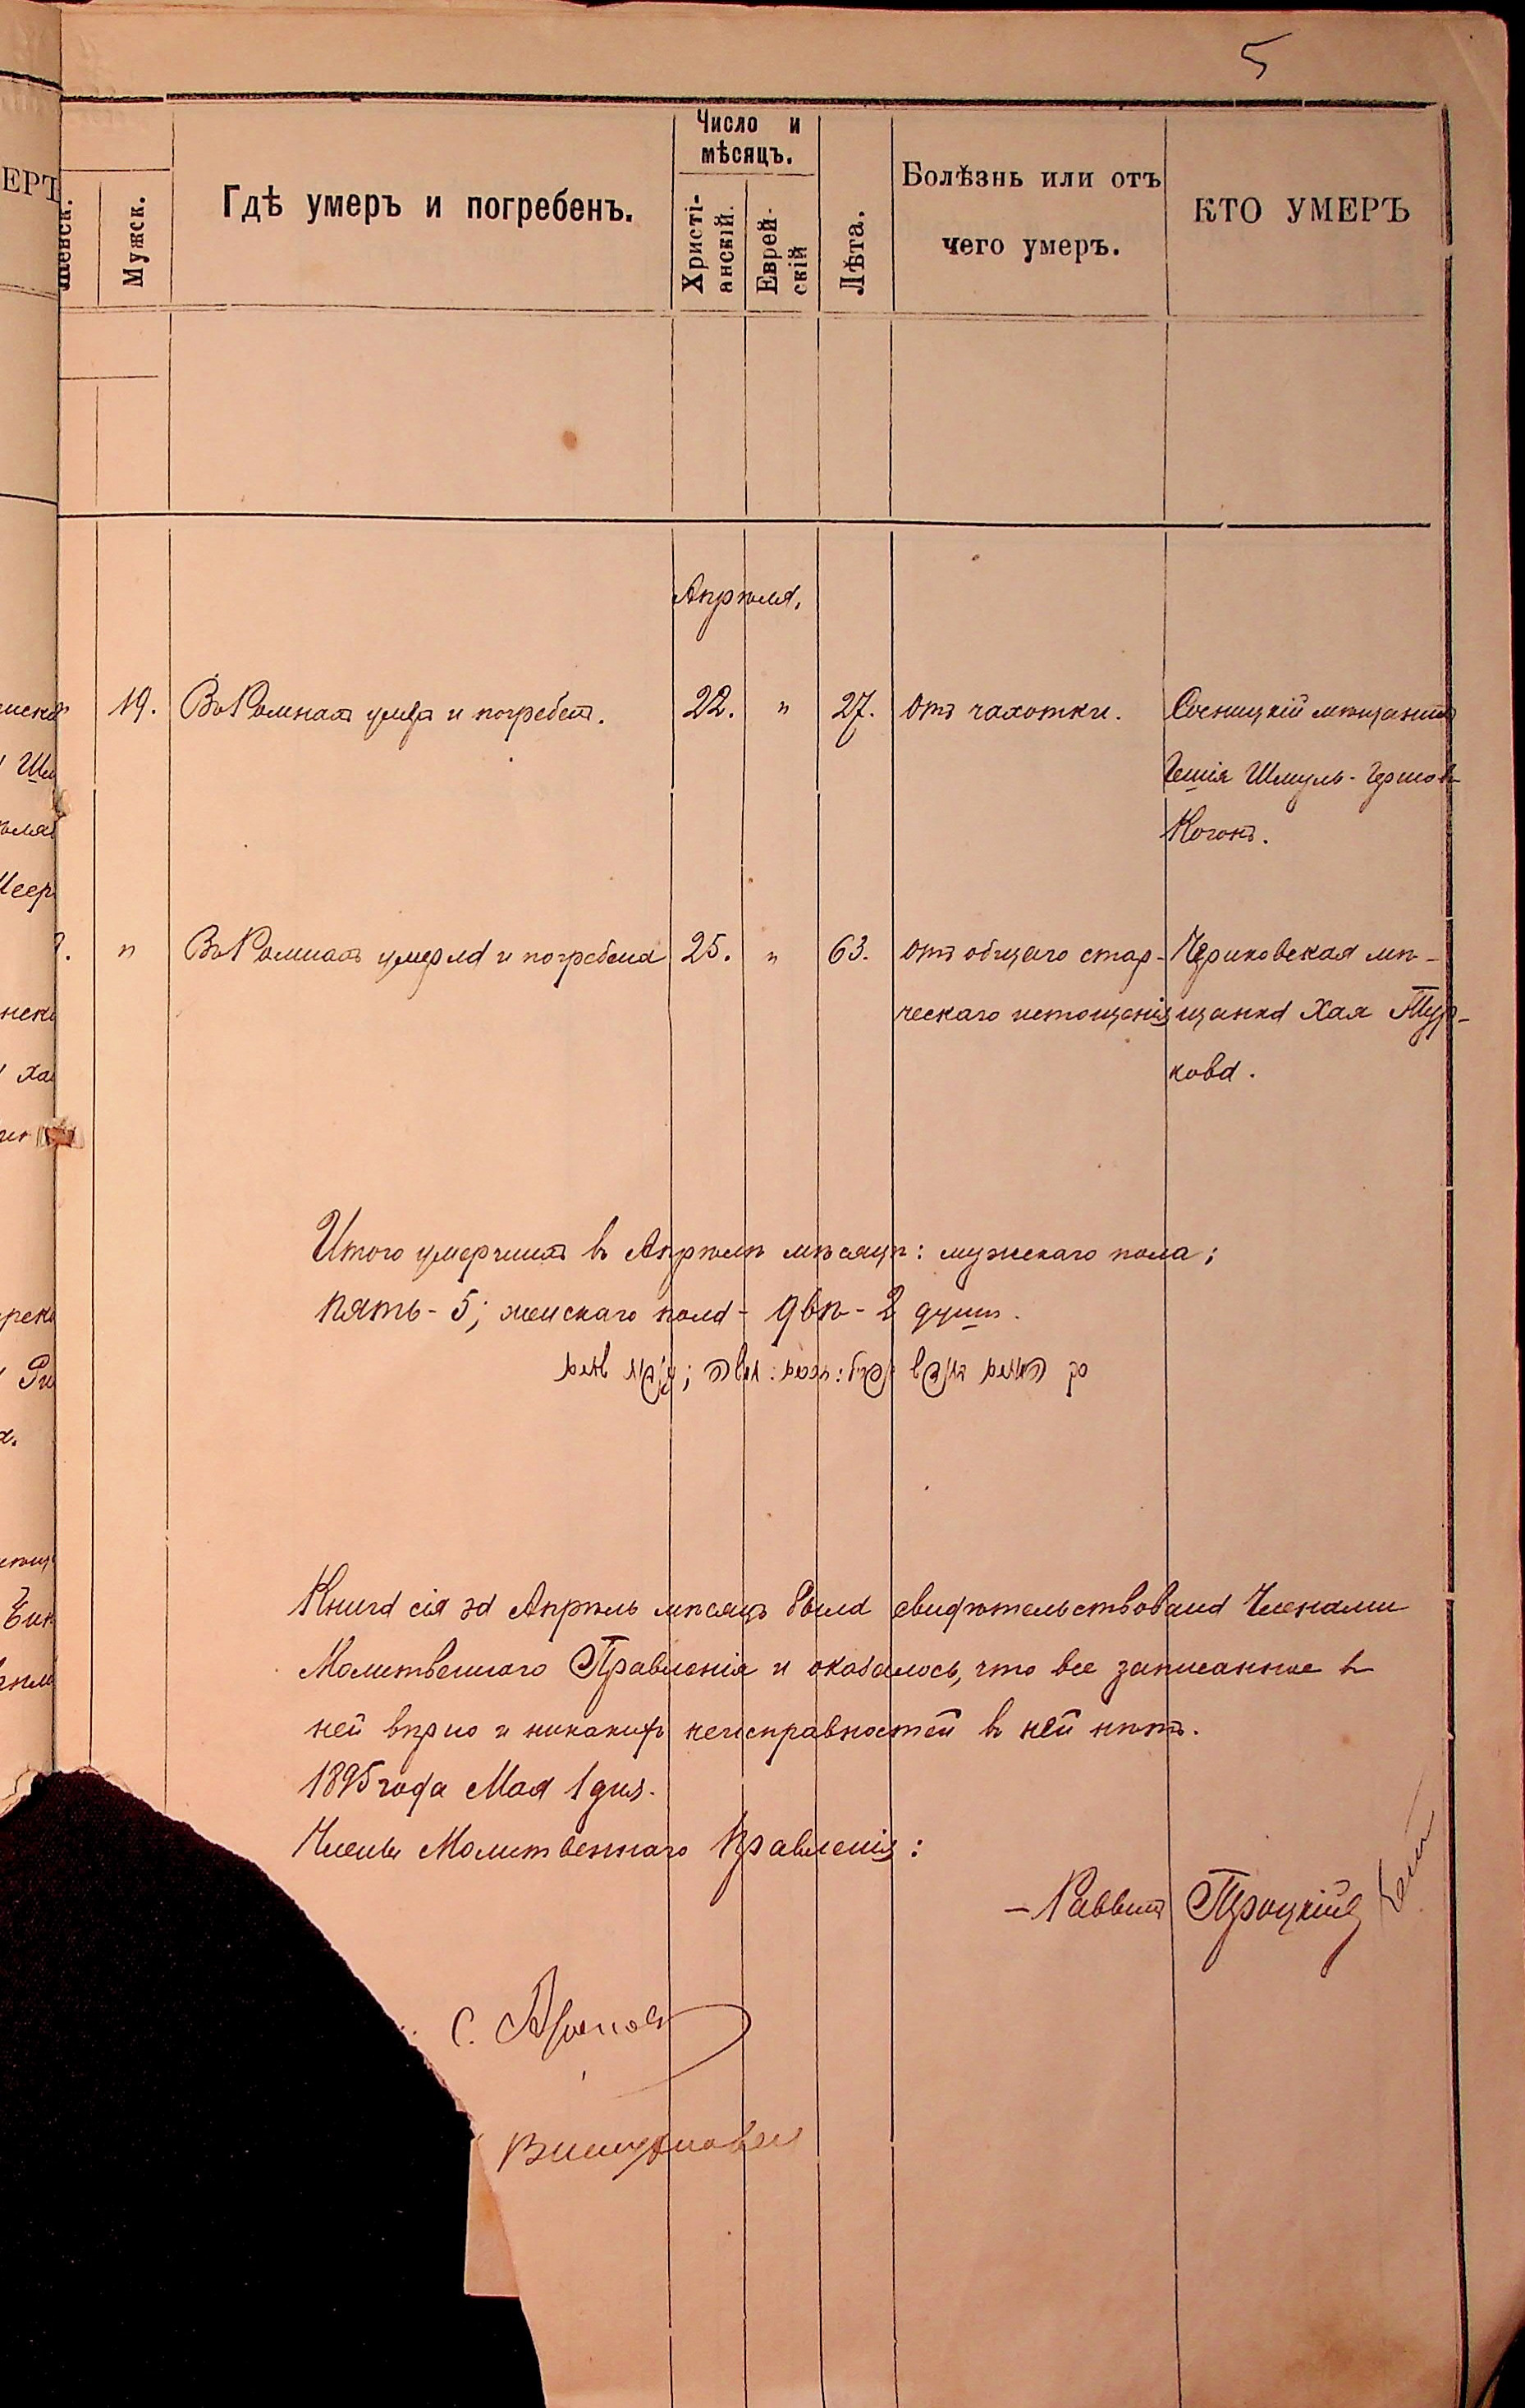 5
Женск.
Мужск.
Гдѣ умеръ и погребенъ.
Число и
мѣсяцъ.
Христі-
анскій.
Еврей-
скій
Лѣта.
Болѣзнь или отъ
чего умеръ.
КТО УМЕРЪ
Апрѣля.
19. Въ Ромнахъ умеръ и погребенъ. 22. " 27. Отъ чахотки. Сосницкій мѣщанинъ
Шмуль-Гершовъ
Когонъ.
" Въ Ромнахъ умерла и погребена 25. " 63. Отъ общаго стар- Чериковская мѣ-
ческаго истощенія щанка Хая Тур-
кова.
Итого умершихъ въ Апрѣлѣ мѣсяцѣ: мужскаго пола;
пять - 5; женскаго пола - двѣ - 2 души.
Книга сія за Апрѣль мѣсяцъ была свидѣтельствована Членами
Молитвеннаго Правленія и оказалось, что все записанное въ
ней вѣрно и никакихъ неисправностей въ ней нѣтъ.
1895 года Мая 1 дня.
Члены Молитвеннаго Правленія:
- Раввинъ Троцкій
С.